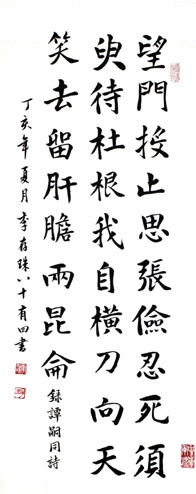 望門投止思張儉忍死須
臾待杜根我自橫刀向天
笑去留肝膽兩昆侖 録譚嗣同詩
丁亥年夏月李存珠八十有四書